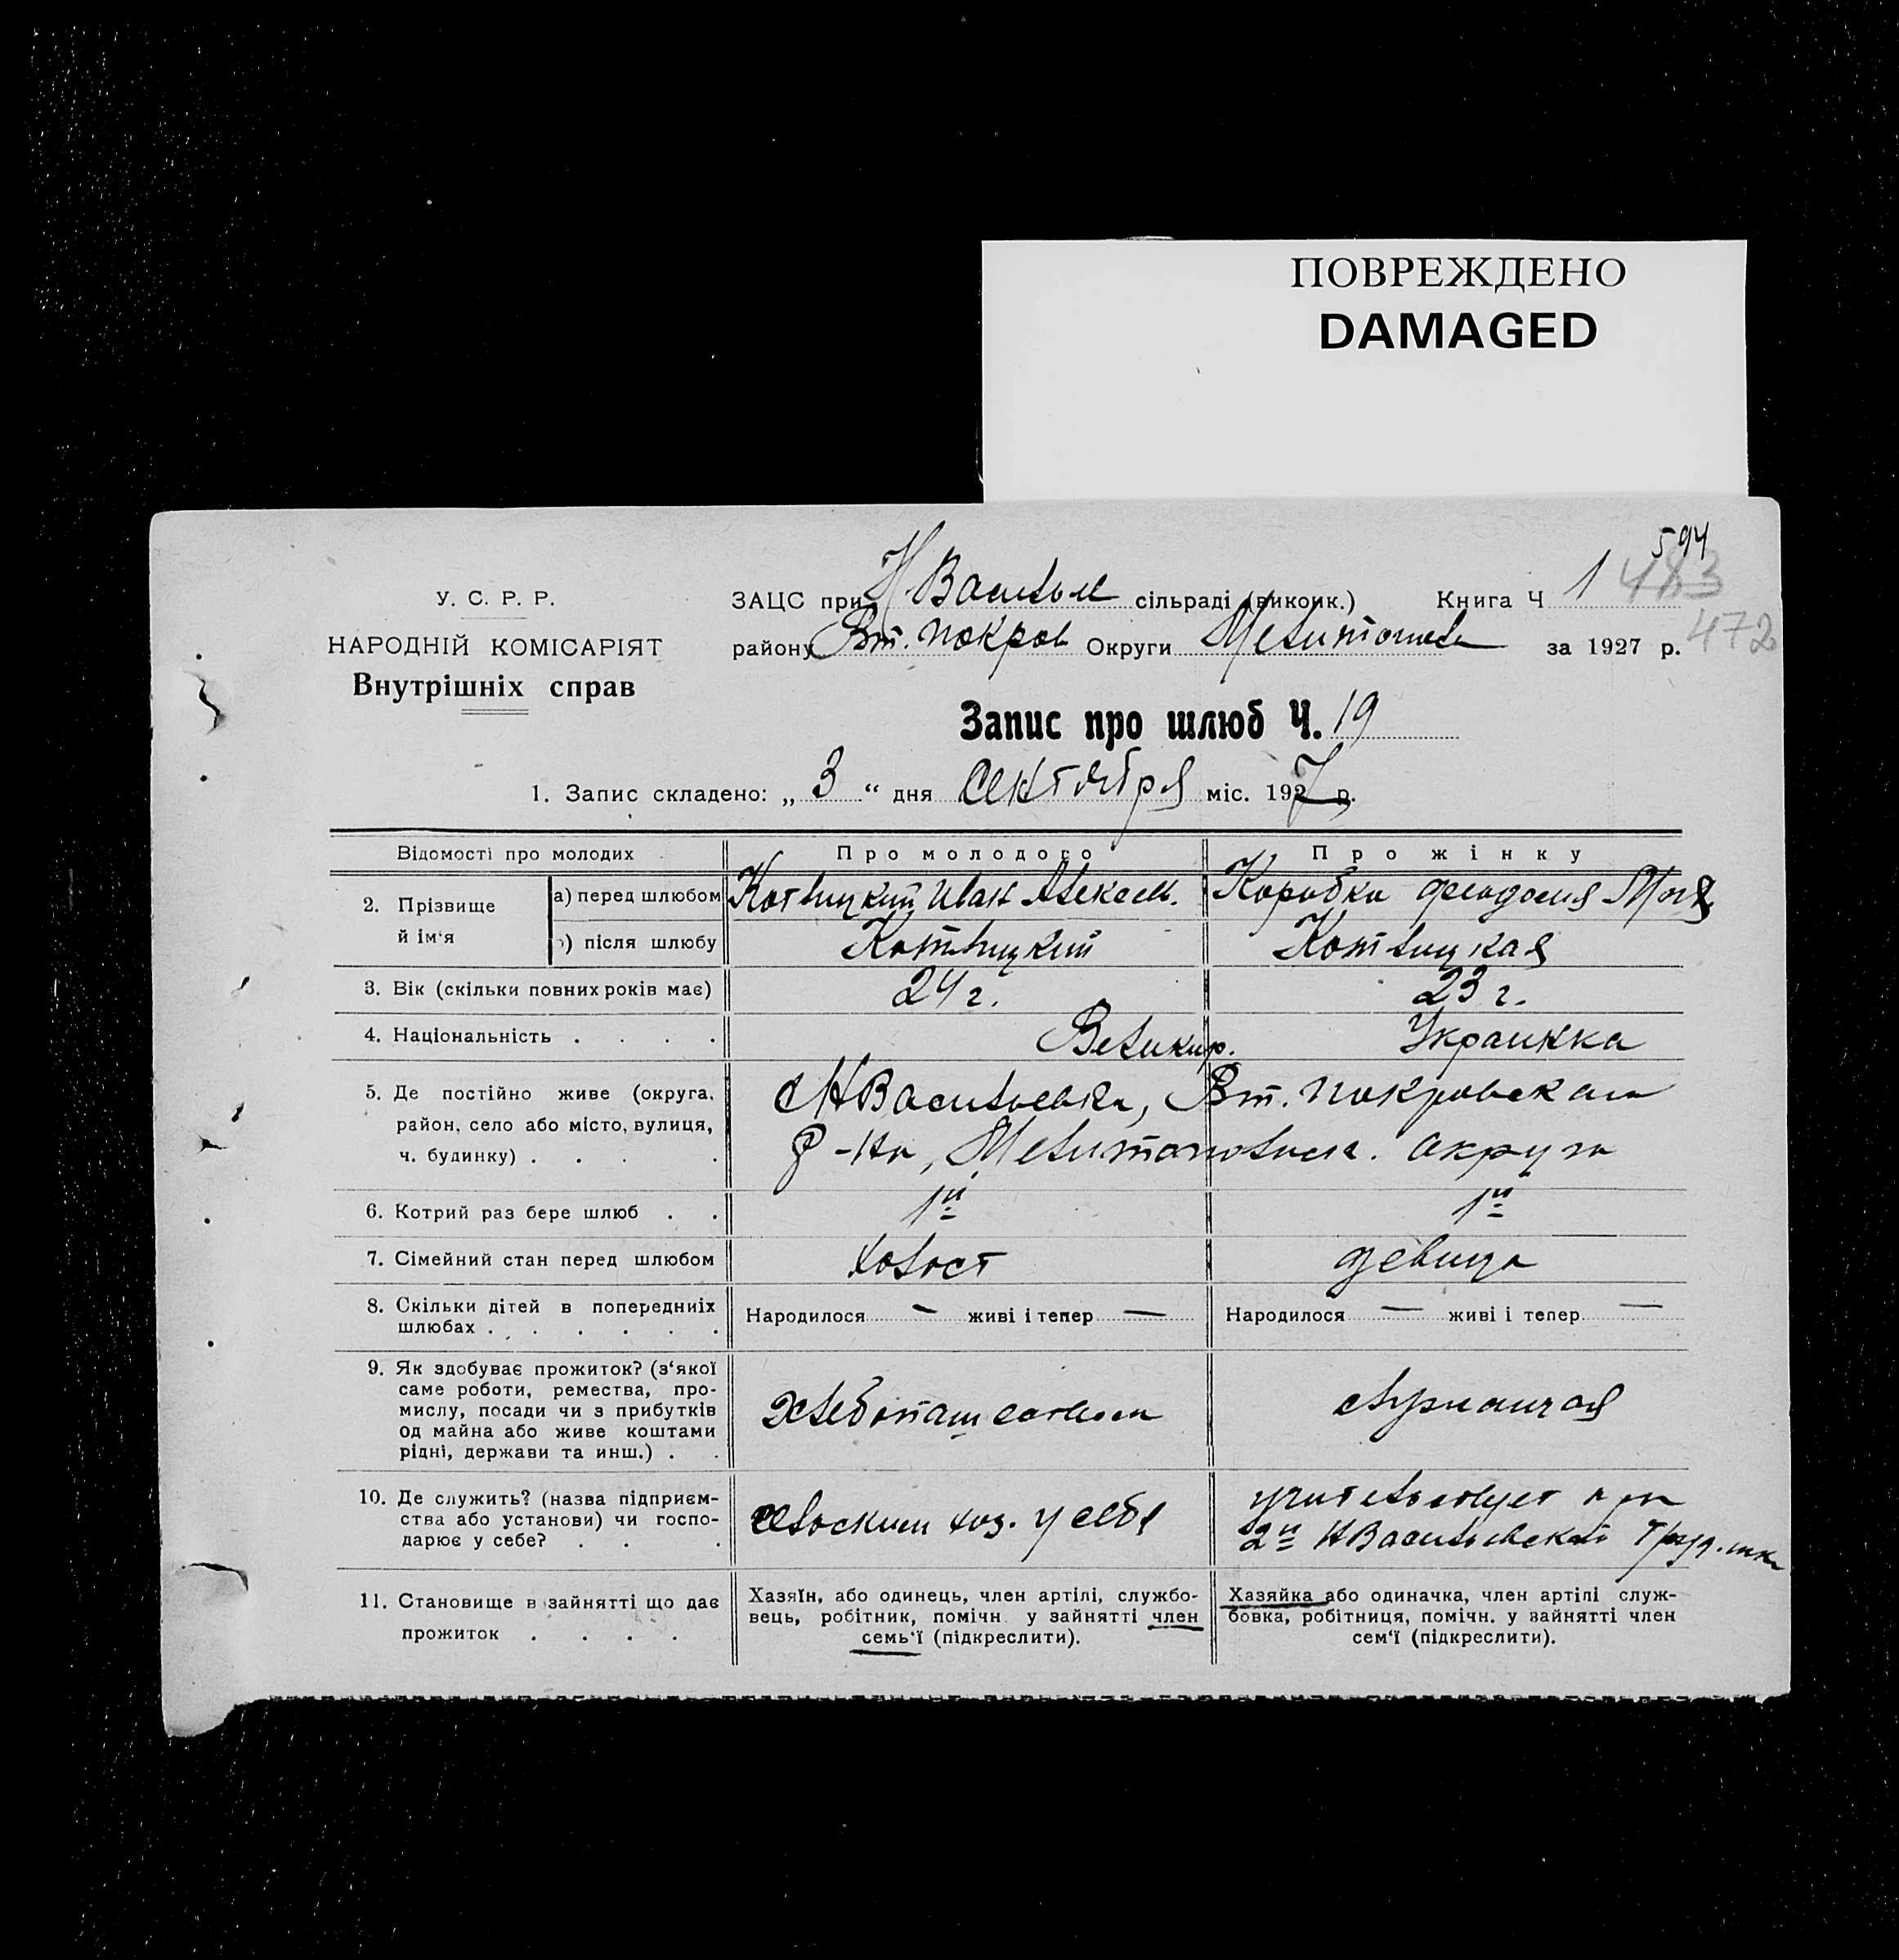 ПОВРЕЖДЕНО
DAMAGED
594
У. С. Р. Р.
ЗАЦС при Н Василье сільраді (виконк.) Книга Ч 1 483
НАРОДНІЙ КОМІСАРІЯТ
району Вт. Покров Округи за 1927 р. 472
Внутрішніх справ
Запис про шлюб Ч. 19
1. Запис складено: „ 3 “ дня Сентября міс. 1927 р.
Відомості про молодих
Про молодого
Про жінку
2. Прізвище й ім‘я
а) перед шлюбом
Котлицкий Иван Алексеев.
Коробка Феодосия
) після шлюбу
Котлицкий
Котлицкая
3. Вік (скільки повних років має)
24 г.
23 г.
4. Національність . . . .
Великор.
Украинка
5. Де постійно живе (округа,
район, село або місто, вулиця,
ч. будинку) . . . .
с НВасильевка, Вт. Покровскаго
р-на, Мелитопольск. округа
6. Котрий раз бере шлюб . .
1й
1й
7. Сімейний стан перед шлюбом
холост
девица
8. Скільки дітей в попередниіх
шлюбах . . . . . .
Народилося — живі і тепер —
Народилося — живі і тепер —
9. Як здобуває прожиток? (з‘якої
саме роботи, ремества, про-
мислу, посади чи з прибутків
од майна або живе коштами
рідні, держави та инш.) . .
хлебопашеством
служащая
10. Де служить? (назва підприєм-
ства або установи) чи госпо-
дарює у себе? . . .
сельским хоз. у себя
учительствует при
2й НВасильевской Труд. шк
11. Становище в зайнятті що дає
прожиток . . . .
Хазяїн, або одинець, член артілі, службо-
вець, робітник, помічн. у зайнятті член
семь‘ї (підкреслити).
Хазяйка або одиначка, член артілі служ-
бовка, робітниця, помічн. у зайнятті член
сем‘ї (підкреслити).